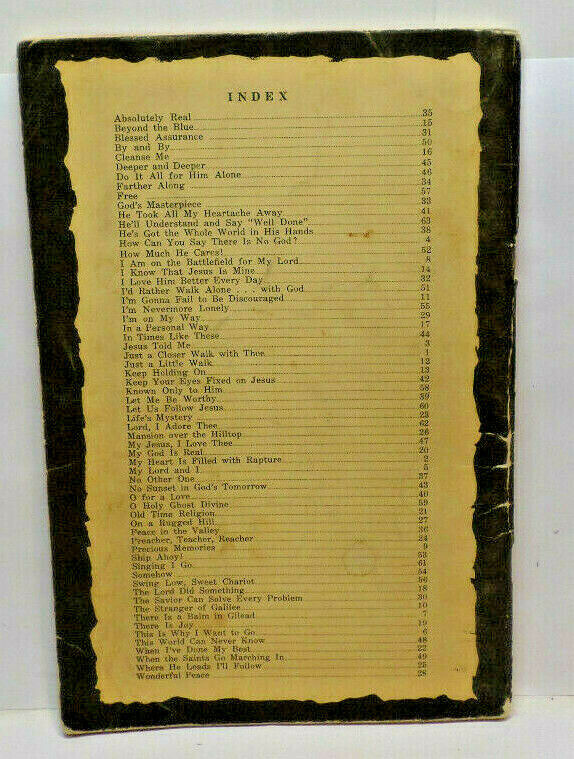 INDEX
Absolutely Real 35
Beyond the Blue 15
Blessed Assurance 31
By and By 50
Cleanse Me 16
Deeper and Deeper 45
Do It All for Him Alone 46
Farther Along 34
Free 57
God's Masterpiece 33
He Took All My Heartache Away 41
He'll Understand and Say "Well Done" 63
He's Got the Whole World in His Hands 38
How Can You Say There Is No God? 4
How Much He Cares! 52
I Am on the Battlefield for My Lord 8
I Know That Jesus Is Mine 14
I Love Him Better Every Day 32
I'd Rather Walk Alone . . . with God 51
I'm Gonna Fail to Be Discouraged 11
I'm Nevermore Lonely 55
I'm on My Way 29
In a Personal Way 17
In Times Like These 44
Jesus Told Me 3
Just a Closer Walk with Thee 1
Just a Little Walk 12
Keep Holding On 13
Keep Your Eyes Fixed on Jesus 42
Known Only to Him 58
Let Me Be Worthy 39
Let Us Follow Jesus 60
Life's Mystery 23
Lord, I Adore Thee 62
Mansion over the Hilltop 26
My Jesus, I Love Thee 47
My God Is Real 20
My Heart Is Filled with Rapture 2
My Lord and I 5
No Other One 37
No Sunset in God's Tomorrow 43
O for a Love 40
O Holy Ghost Divine 59
Old Time Religion 21
On a Rugged Hill 27
Peace in the Valley 36
Preacher, Teacher, Reacher 24
Precious Memories 9
Ship Ahoy! 53
Singing I Go 61
Somehow 54
Swing Low, Sweet Chariot 56
The Lord Did Something 18
The Savior Can Solve Every Problem 30
The Stranger of Galilee 10
There Is a Balm in Gilead 7
There Is Joy 19
This Is Why I Want to Go 6
This World Can Never Know 48
When I've Done My Best 22
When the Saints Go Marching In 49
Where He Leads I'll Follow 25
Wonderful Peace 28